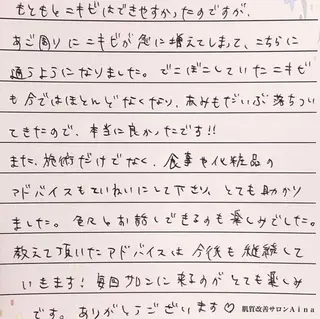 もともとニキビはできやすかったのですが、
あご周りにニキビが急に増えてしまって、こちらに
通うようになりました。でこぼこしていたニキビ
も今ではほとんどなくなり、赤みもだいぶ落ちつい
てきたので、本当に良かったです!!
また、施術だけでなく、食事や化粧品の
アドバイスもていねいにして下さり、とても助かり
ました。色々とお話しできるのも楽しみでした。
教えて頂いたアドバイスは今後も継続して
いきます!毎回サロンに来るのがとても楽しみ
です。ありがとうございます♡
肌質改善サロンAina